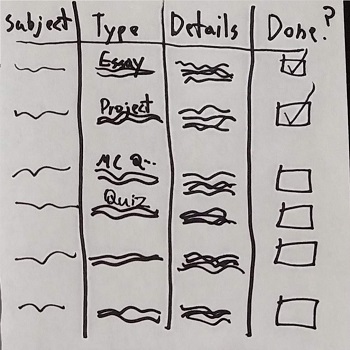 Subject Type Details Done?
Essay
Project
MC Q...
Quiz